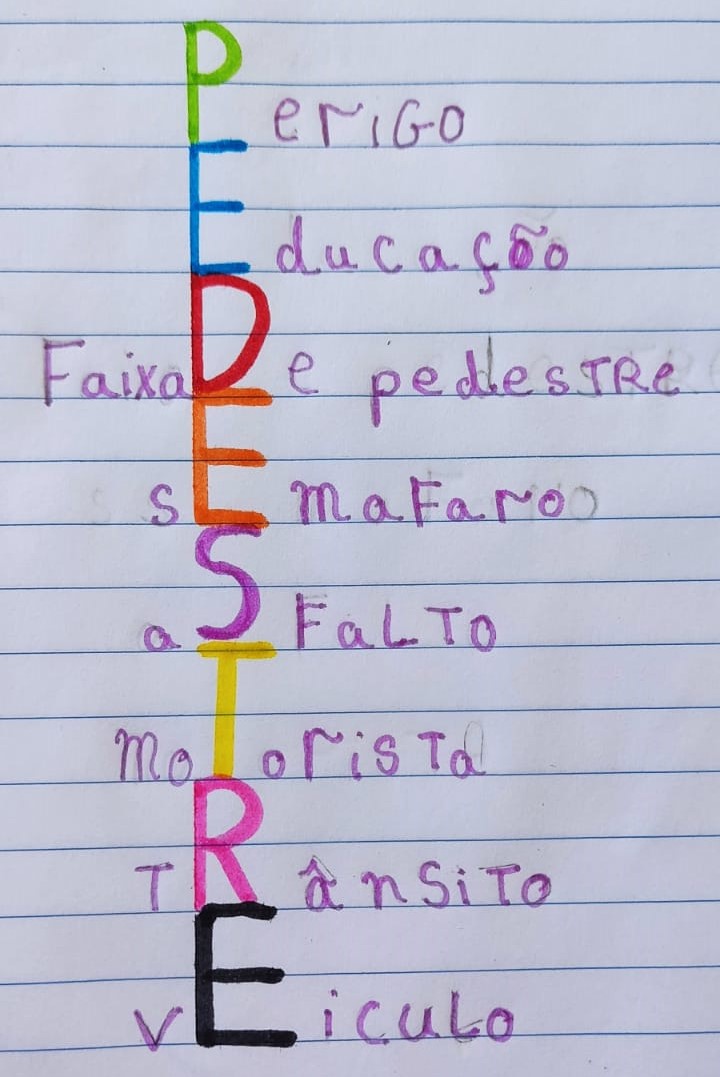 PerIGO
Educação
FaixaDe pedesTRe
sEmaFaro
aSFaLTO
moTorisTa
TRânSiTo
vEiculo